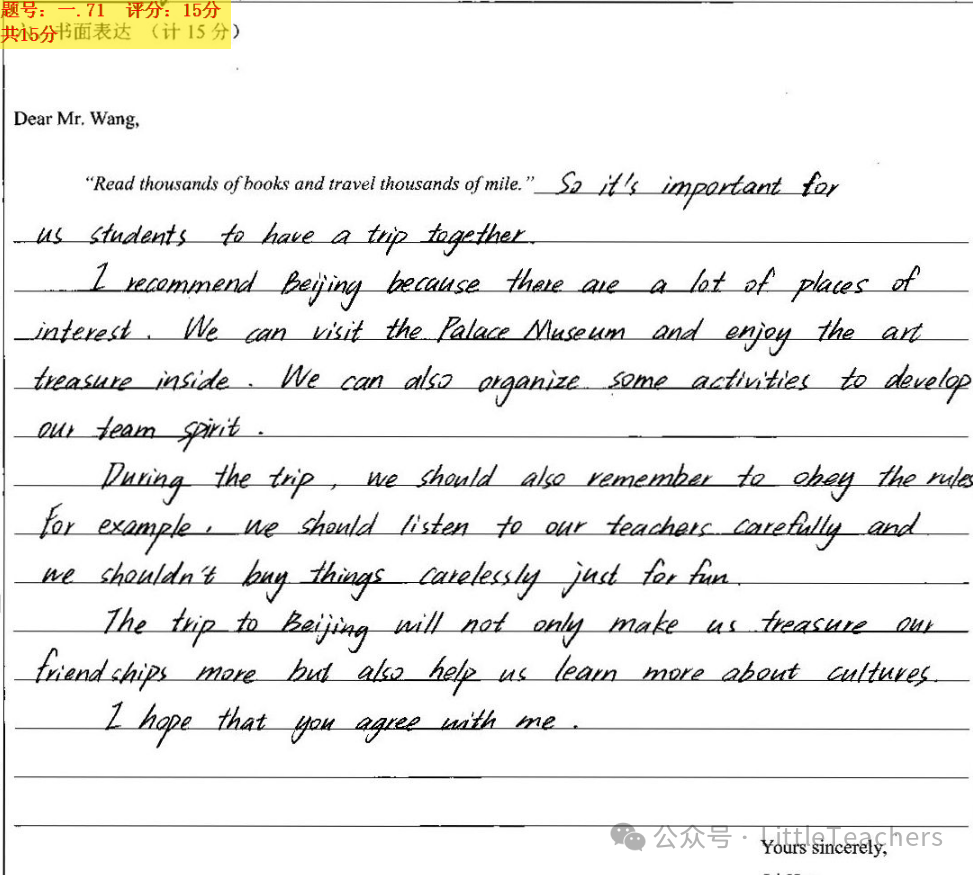 题号：一.71 评分：15分
共15分 书面表达 （计 15 分）
Dear Mr. Wang,
“Read thousands of books and travel thousands of mile.” So it's important for
us students to have a trip together.
I recommend Beijing because there are a lot of places of
interest. We can visit the Palace Museum and enjoy the art
treasure inside. We can also organize some activities to develop
our team spirit.
During the trip, we should also remember to obey the rules
For example, we should listen to our teachers carefully and
we shouldn't buy things carelessly just for fun.
The trip to Beijing will not only make us treasure our
friendships more but also help us learn more about cultures.
I hope that you agree with me.
公众号 · LittleTeachers
Yours sincerely,